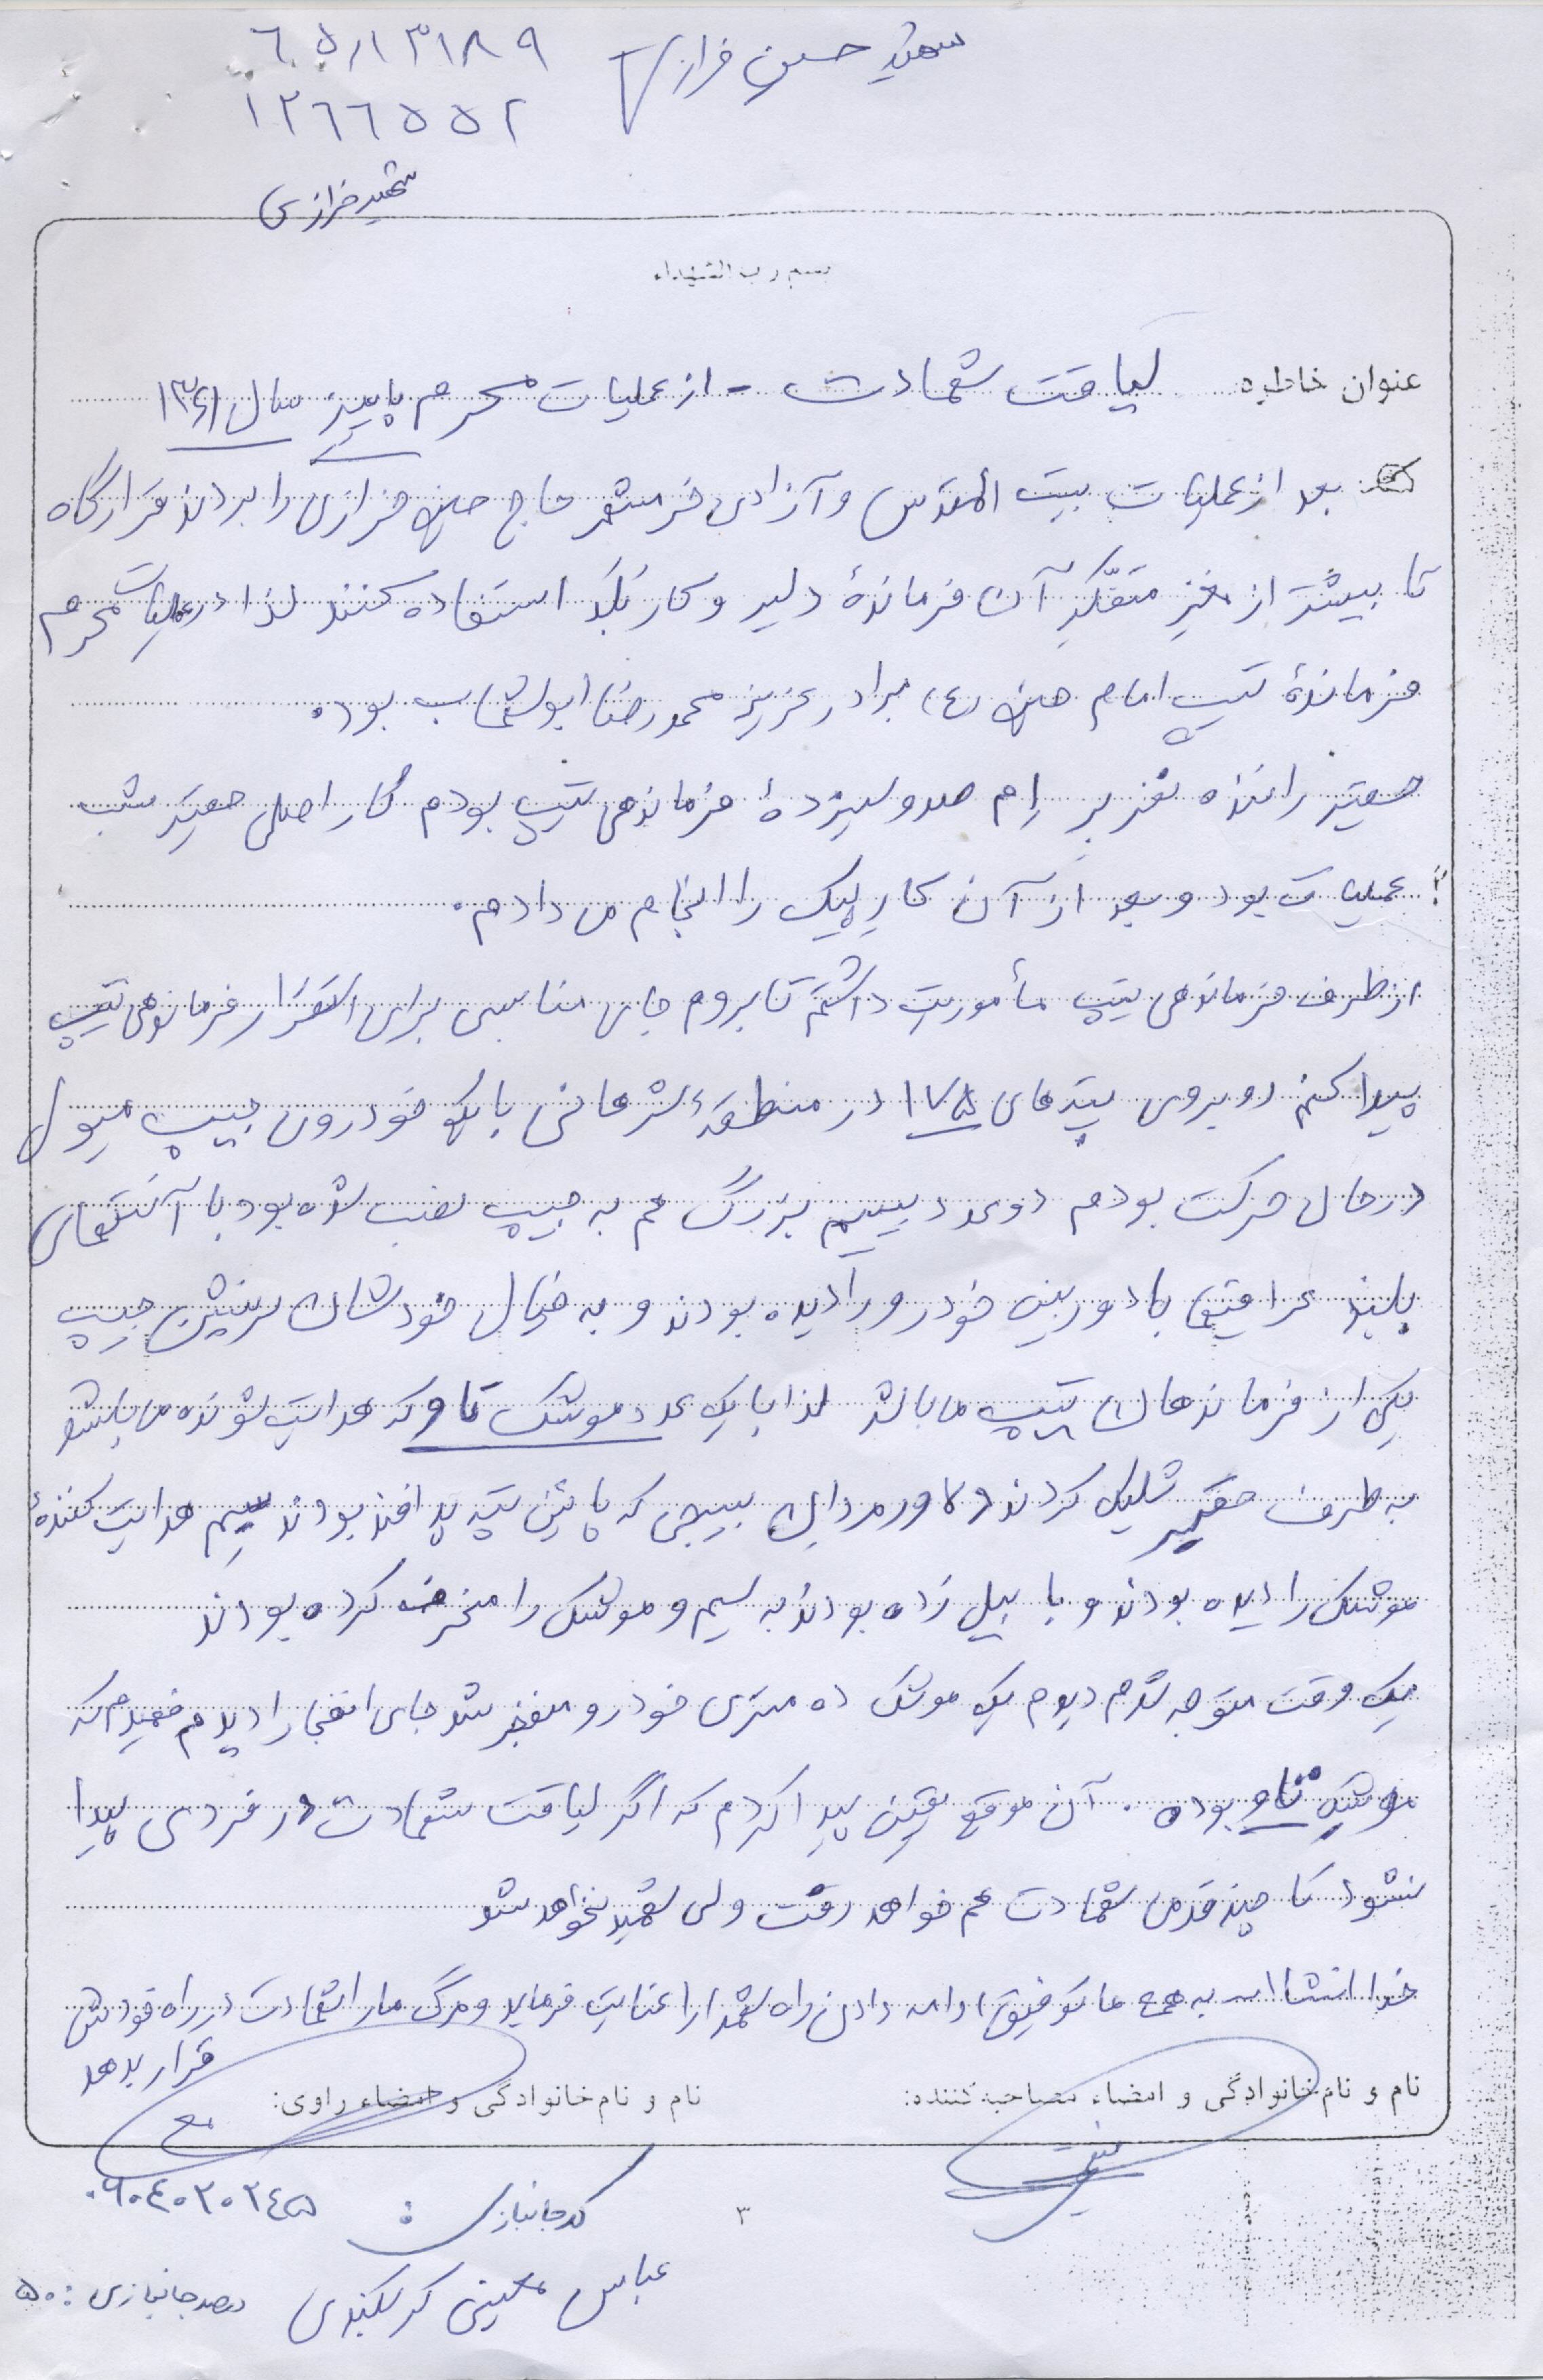 شهید حسین خرازی ٦٥١٣١٨٩
١٢٦٦٥٥٢
شهید خرازی
بسم رب الشهداء
عنوان خاطره لیاقت شهادت - از عملیات محرم پاییز سال ۱۳۶۱
بعد از عملیات بیت المقدس و آزادی خرمشهر حاج حسین خرازی را بردند قرارگاه
تا بیشتر از مغز متفکّر آن فرماندهٔ دلیر و کار بَلَد استفاده کنند لذا در عملیات محرم
فرماندهٔ تیپ امام حسین (ع) برادر عزیز محمدرضا ابوشهاب بود.
حقیر راننده نفربر اِم صدو سیزدهٔ فرماندهی تیپ بودم کار اصلی حقیر شب
عملیات بود و بعد از آن کارِ پیک را انجام می دادم.
از طرف فرماندهی تیپ مأموریت داشتم تا بروم جای مناسبی برای استقرار فرماندهی تیپ
پیدا کنم روبروی تپه های ۱۷۵ در منطقهٔ شرهانی با یک خودروی جیپ میول
در حال حرکت بودم دو عدد بیسیم بزرگ هم به جیپ نصب شده بود با آنتنهای
بلند عراقیها با دوربین خودرو را دیده بودند و به خیال خودشان سرنشین جیپ
یکی از فرماندهان تیپ می باشد لذا با یک عدد موشک تاو که هدایت شونده می باشد
به طرف حقیر شلیک کردند دلاورمردان بسیجی که پائین تپه پدافند بودند سیم هدایت کنندهٔ
موشک را دیده بودند و با بیل زده بودند به سیم و موشک را منحرف کرده بودند
یک وقت متوجه شدم دیدم یک موشک ده متری خودرو منفجر شد جای انفجار را دیدم فهمیدم که
موشکِ تاو بوده. آن موقع یقین پیدا کردم که اگر لیاقت شهادت در فردی پیدا
نشود تا چند قدمی شهادت هم خواهد رفت ولی شهید نخواهد شد
خدا انشاا... به همهٔ ما توفیق ادامه دادن راه شهدا را عنایت فرماید و مرگ ما را شهادت در راه خودش
قرار بدهد
نام و نام خانوادگی و امضاء مصاحبه کننده: نام و نام خانوادگی و امضاء راوی:
کد جانبازی : ٠٩٠٤٠٢٠٢٤٥
۳
عباس معینی کربکندی درصد جانبازی: ۵۰